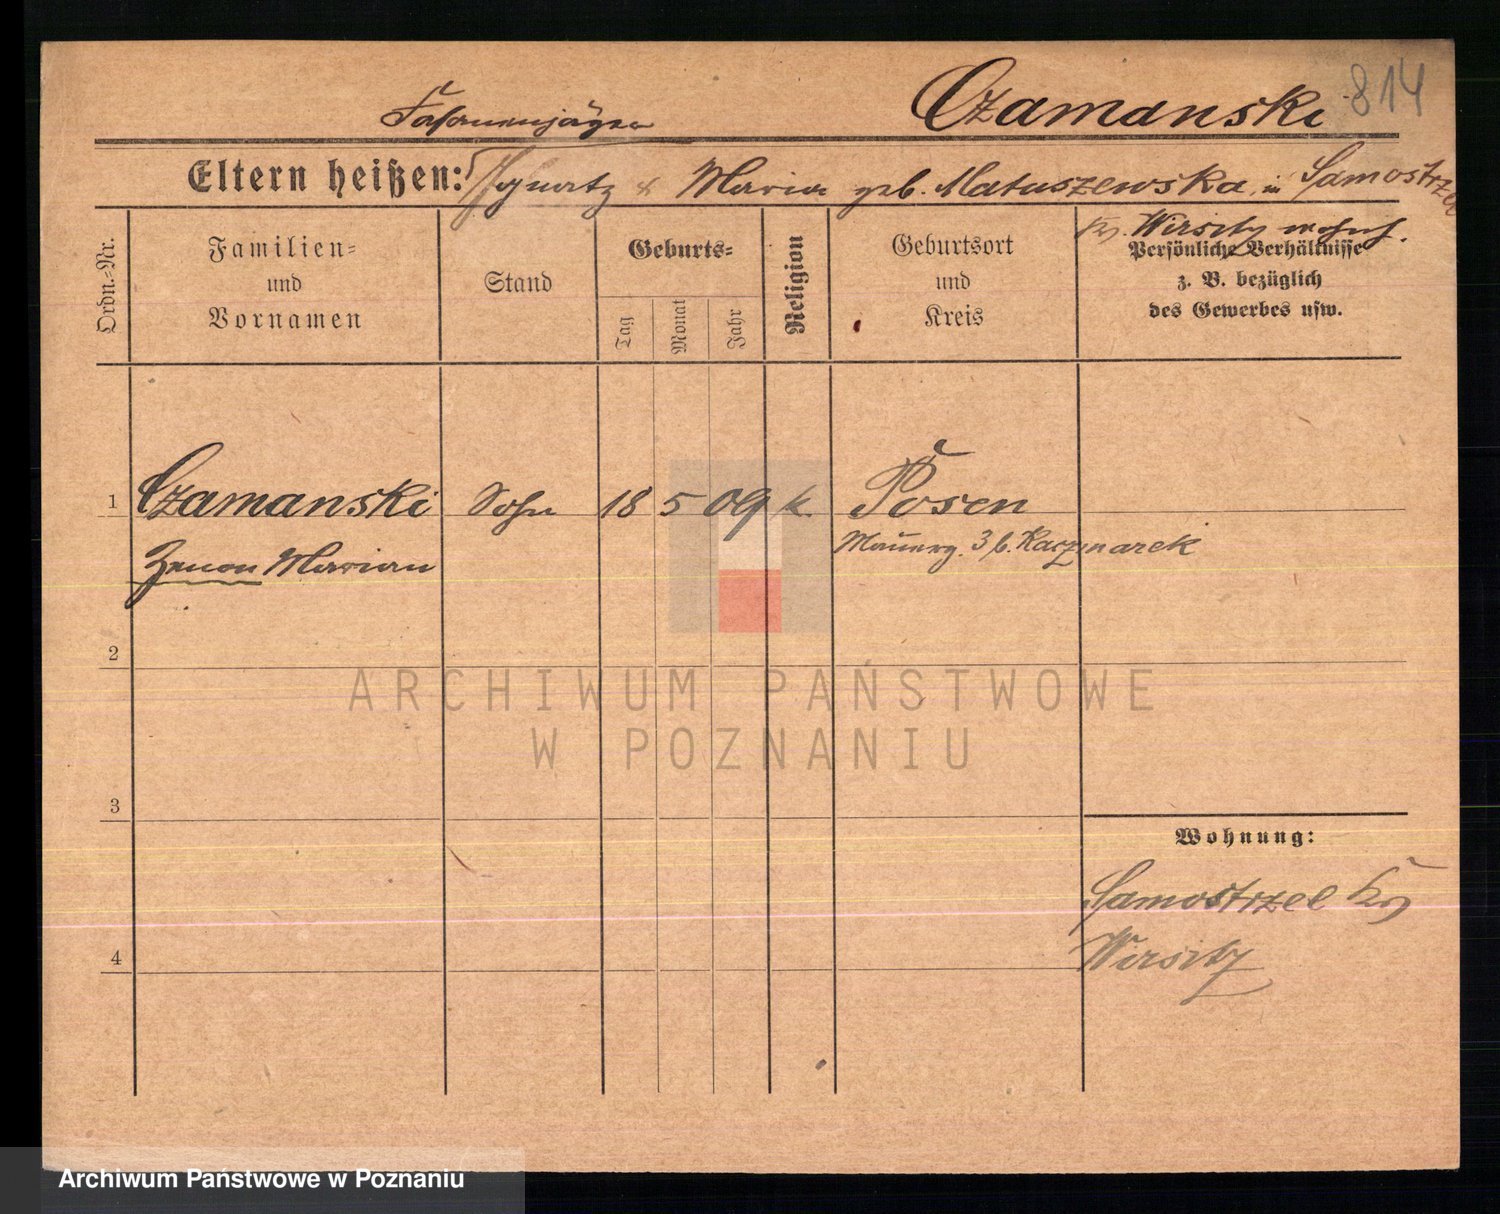 Fasanenjäger Czamanski 814
Eltern heißen: Ignatz & Maria geb. Matuszewska in Samostrzel
Krs. Wirsitz wohnh.
Ordn.-Nr.
Familien-
und
Vornamen
Stand
Geburts-
Tag
Monat
Jahr
Religion
Geburtsort
und
Kreis
Persönliche Verhältnisse
z. B. bezüglich
des Gewerbes usw.
1 Czamanski Sohn 18 5 09 k. Posen
Mauerg. 3 b. Kaczmarek
Zenon Marian
2
3
Wohnung:
Samostrzel Krs
4
Wirsitz
ARCHIWUM PAŃSTWOWE
W POZNANIU
Archiwum Państwowe w Poznaniu